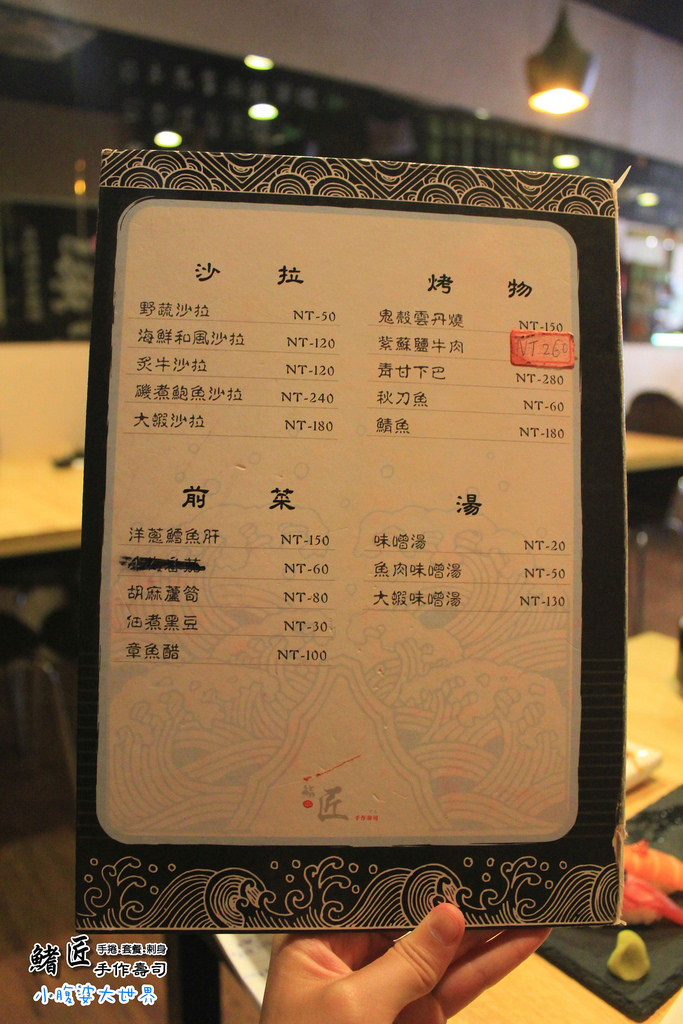 沙 拉
野蔬沙拉 NT-50
海鮮和風沙拉 NT-120
炙牛沙拉 NT-120
磯煮鮑魚沙拉 NT-240
大蝦沙拉 NT-180
烤 物
鬼殼雲丹燒 NT-150
紫蘇鹽牛肉 NT 260
青甘下巴 NT-280
秋刀魚 NT-60
鯖魚 NT-180
前 菜
洋蔥鱈魚肝 NT-150
NT-60
胡麻蘆筍 NT-80
佃煮黑豆 NT-30
章魚醋 NT-100
湯
味噌湯 NT-20
魚肉味噌湯 NT-50
大蝦味噌湯 NT-130
匠
鰭匠 手捲.套餐.刺身
手作壽司
小腹婆大世界